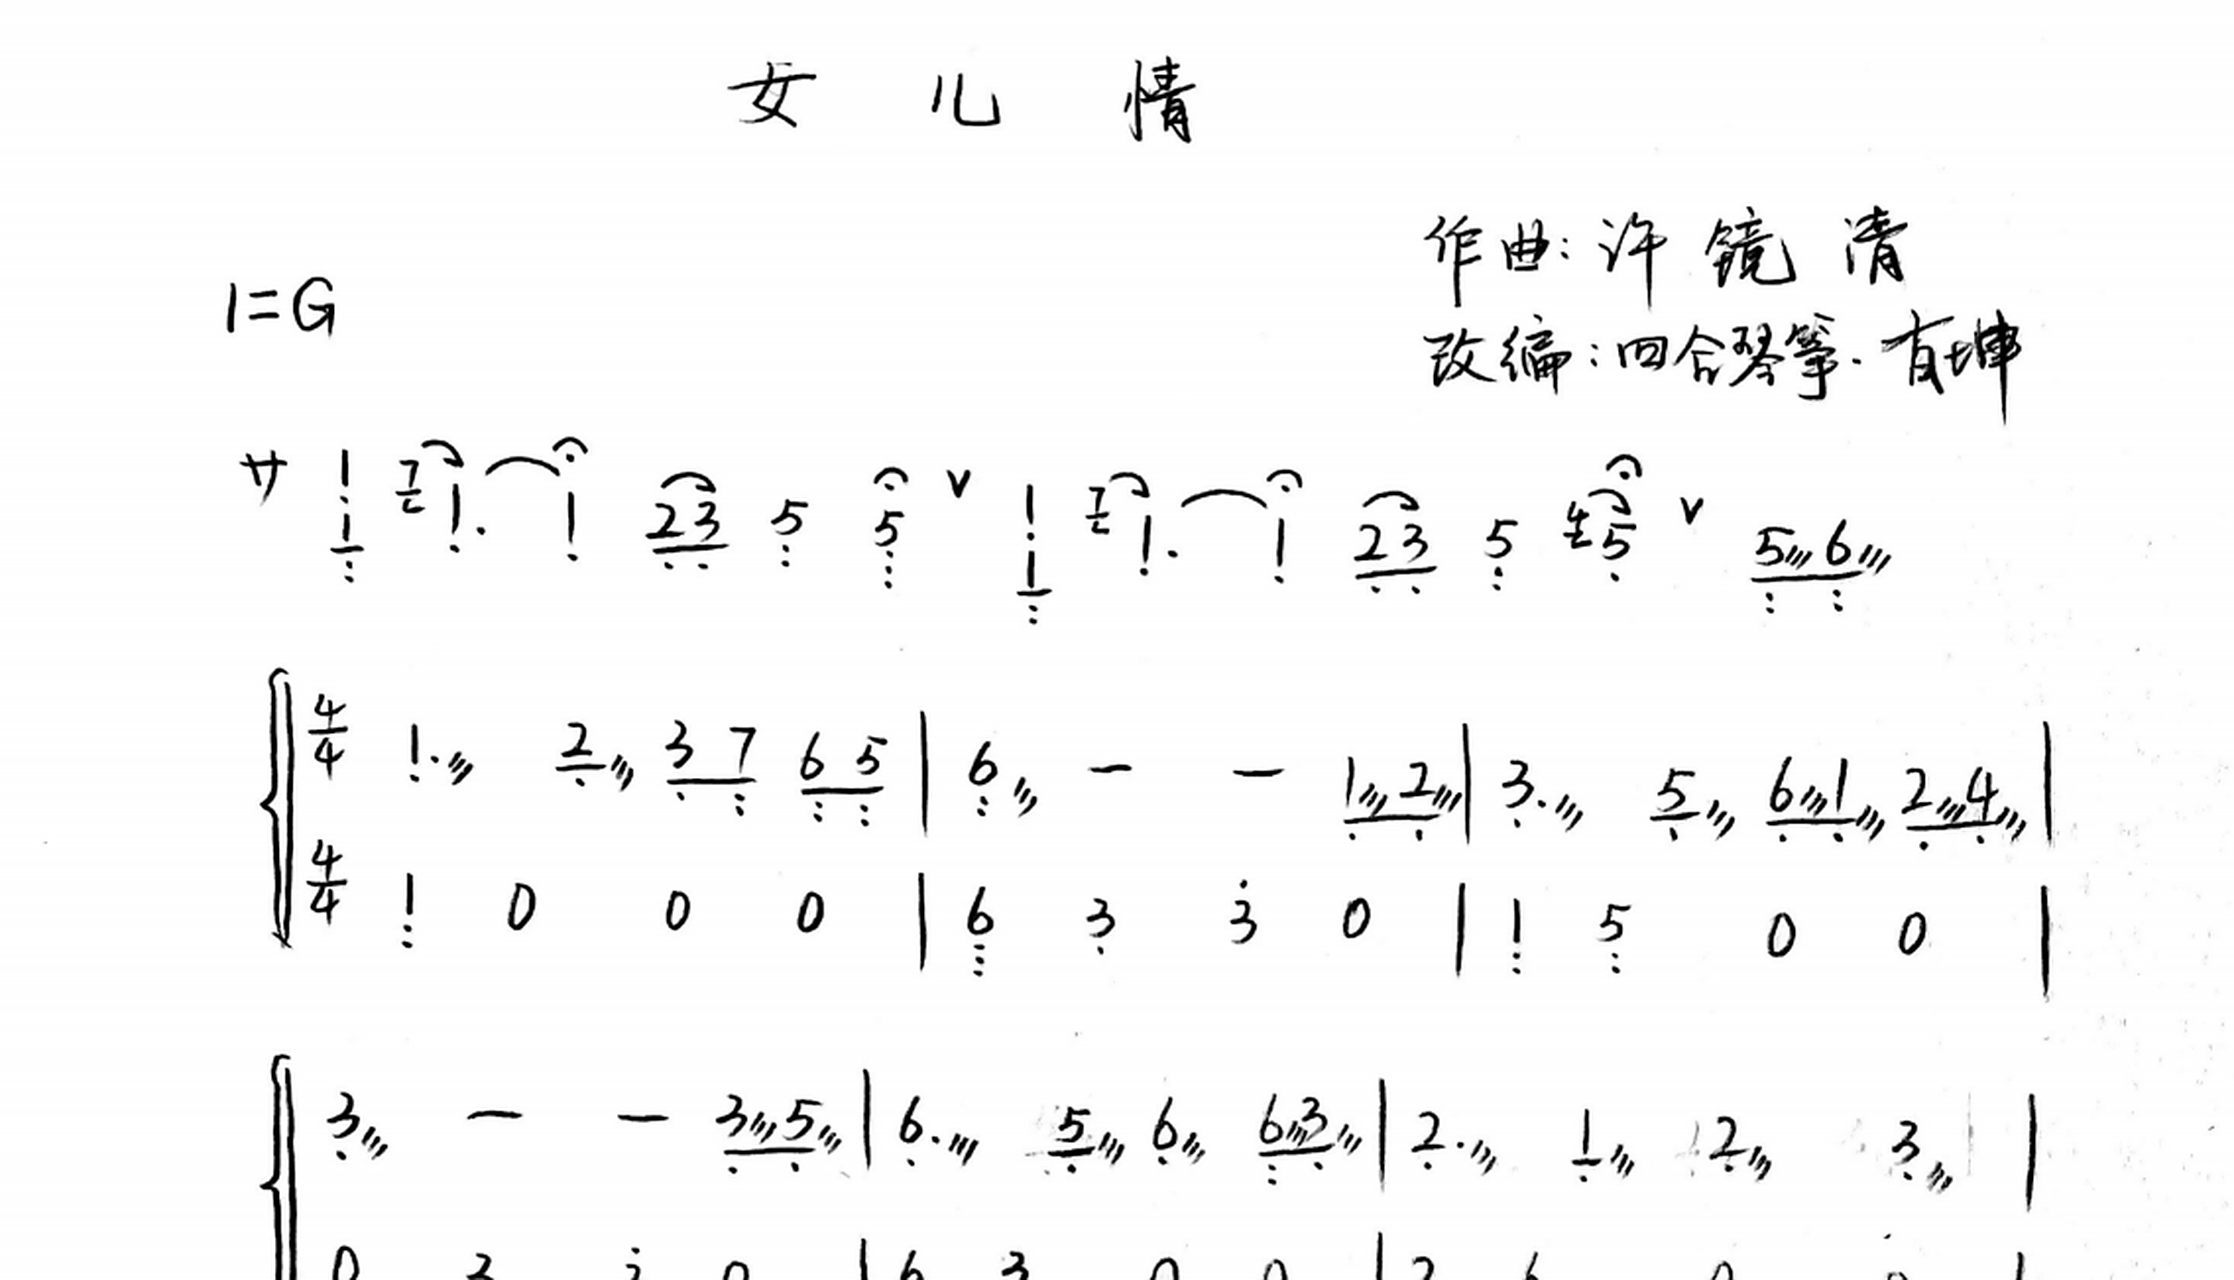 女 儿 情
作曲: 许 镜 清
1=G
改编: 四合琴筝·有坤
サ 1 1 7 1. 1 2 3 5 5 v 1 1 7 1. 1 2 3 5 4 5 v 5 6
4/4 1. 2 3 7 6 5 | 6 - - 1 2 | 3. 5 6 1 2 4 |
4/4 1 0 0 0 | 6 3 3 0 | 1 5 0 0 |
3 - - 3 5 | 6. 5 6 6 3 | 2. 1 2 3 |